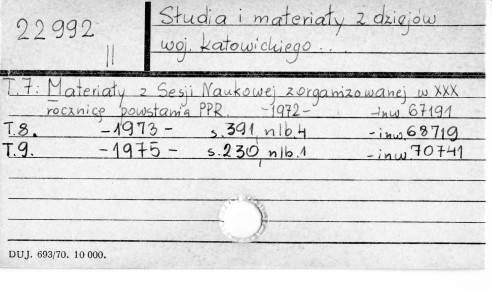 22992
II
Studia i materiały z dziejów
woj. katowickiego...
T.7: Materiały z Sesji Naukowej zorganizowanej w XXX
rocznicę powstania PPR. -1972- -inw 67191
T.8. -1973- s.391, nlb.4 -inw.68719
T.9. -1975- s.230, nlb.1 -inw 70741
DUJ. 693/70. 10 000.